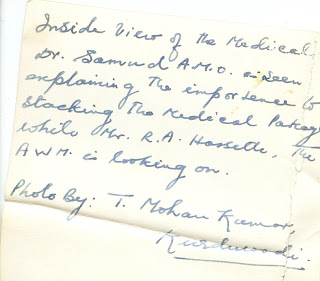 Inside View of the Medical
Dr. Samuel A.M.O. is seen
explaining the importence to
stacking the Medical Packag
while Mr. R.A. Hassette, The
AWM. is looking on.
Photo By: T. Mohan Kumar,
Kurduwadi.